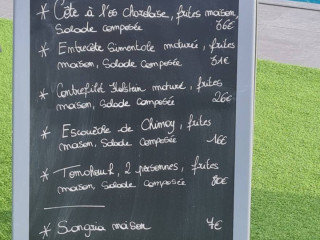 * Côte à l'os charolaise, frites maison,
Salade composée 66€
* Entrecôte Simentale maturé, frites
maison, Salade composée 31€
* Contrefilet Holstein maturé, frites
maison, Salade composée 26€
* Escavèche de Chimay, frites
maison, Salade composée 16€
* Tomahawk, 2 personnes, frites
maison, Salade composée 80€
* Sangria maison 7€